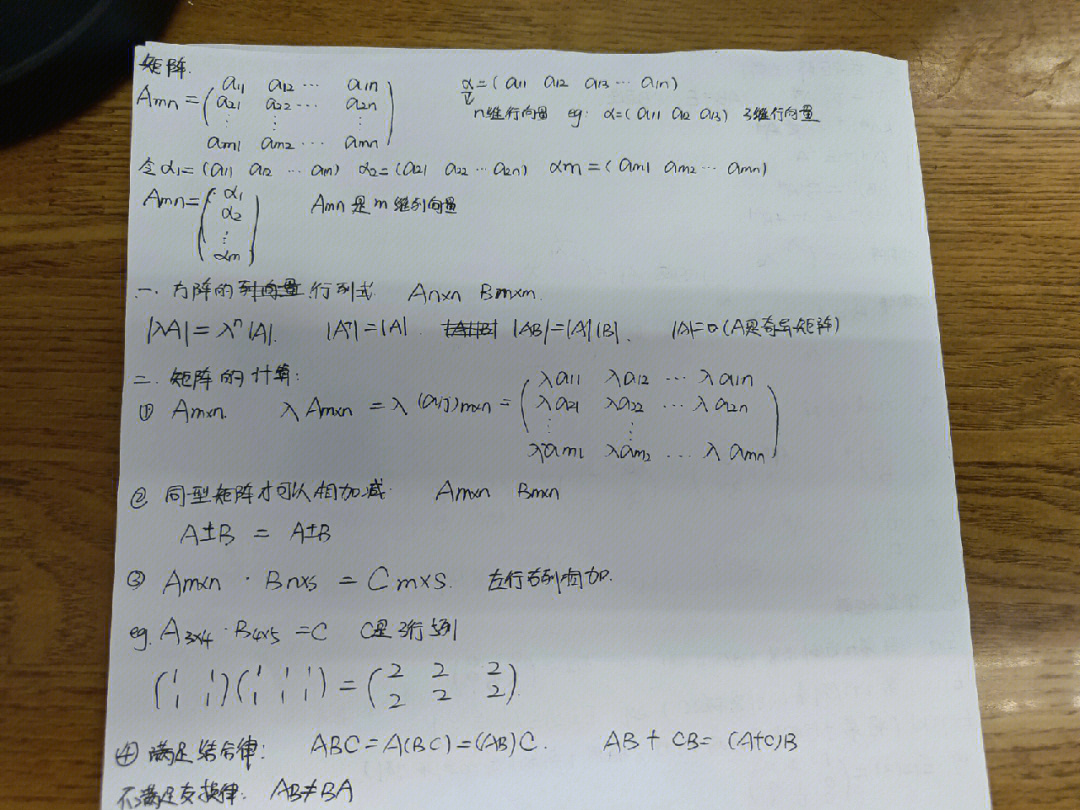 矩阵.
Amn = ( a11 a12 … a1n
a21 a22 … a2n
⋮ ⋮ ⋮
am1 am2 … amn )
α = ( a11 a12 a13 … a1n )
n维行向量 eg: α=( a11 a12 a13 ) 3维行向量
令α1=(a11 a12 … a1n) α2=(a21 a22 … a2n) αm=(am1 am2 … amn)
Amn= ( α1
α2
⋮
αm )
Amn是m维列向量
一. 方阵的行列式 Anxn Bmxm.
|λA|=λⁿ|A|. |Aᵀ|=|A|. |AB|=|A||B|. |A|=0(A是奇异矩阵)
二. 矩阵的计算:
① Amxn. λAmxn = λ(aij)mxn = ( λa11 λa12 … λa1n
λa21 λa22 … λa2n
⋮ ⋮
λam1 λam2 … λamn )
② 同型矩阵才可以相加减. Amxn Bmxn
A±B = A±B
③ Amxn · Bnxs = Cmxs. 左行右列相加.
eg. A3x4 · B4x5 = C C是3行5列
( 1 1 ) ( 1 1 1 ) = ( 2 2 2
1 1 1 1 1 2 2 2 )
④ 满足结合律: ABC=A(BC)=(AB)C. AB+CB=(A+C)B
不满足交换律. AB≠BA